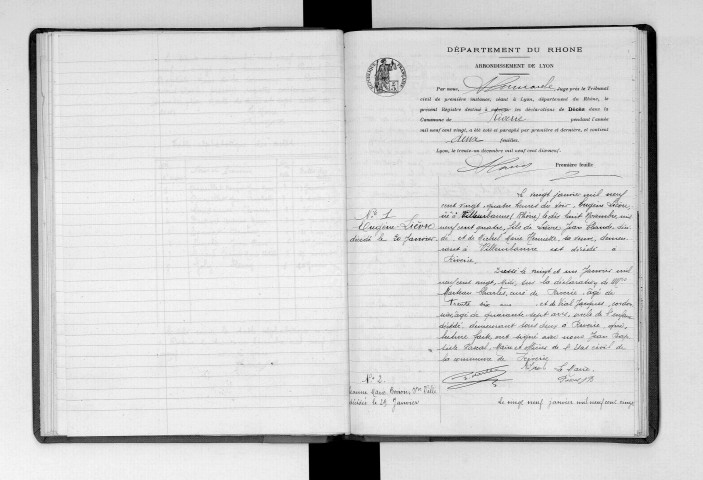 DÉPARTEMENT DU RHONE
ARRONDISSEMENT DE LYON
Par nous, Juge près le Tribunal
civil de première instance, séant à Lyon, département du Rhône, le
présent Registre destiné à les déclarations de Décès dans la
Commune de Riverie pendant l'année
mil neuf cent vingt, a été coté et paraphé par première et dernière, et contient
deux feuilles.
Lyon, le trente-un décembre mil neuf cent dix-neuf.
Première feuille
N° 1
Eugène Lièvre
décédé le 20 Janvier
Le vingt janvier mil neuf
cent vingt, quatre heures du soir, Eugène Lièvre,
né à Villeurbanne (Rhône) le dix huit Novembre mil
neuf cent quatre, fils de Lièvre Jean Claude, décé
dé, et de Michel Marie sa veuve, demeu
rant à Villeurbanne est décédé à
Riverie.
Dressé le vingt et un Janvier mil
neuf cent vingt, sur la déclaration de M.
Charles, curé de Riverie, âgé de
trente six ans et de Vial Jacques, cordon
nier, âgé de quarante sept ans,
décédé, demeurant tous deux à Riverie, qui,
lecture faite, ont signé avec nous Jean Bap
tiste Pascal, Maire et officier de l'Etat civil de
la commune de Riverie
Le Maire
N° 2
Jeanne Marie Vve
décédée le 29 Janvier
Le vingt neuf janvier mil neuf cent vingt